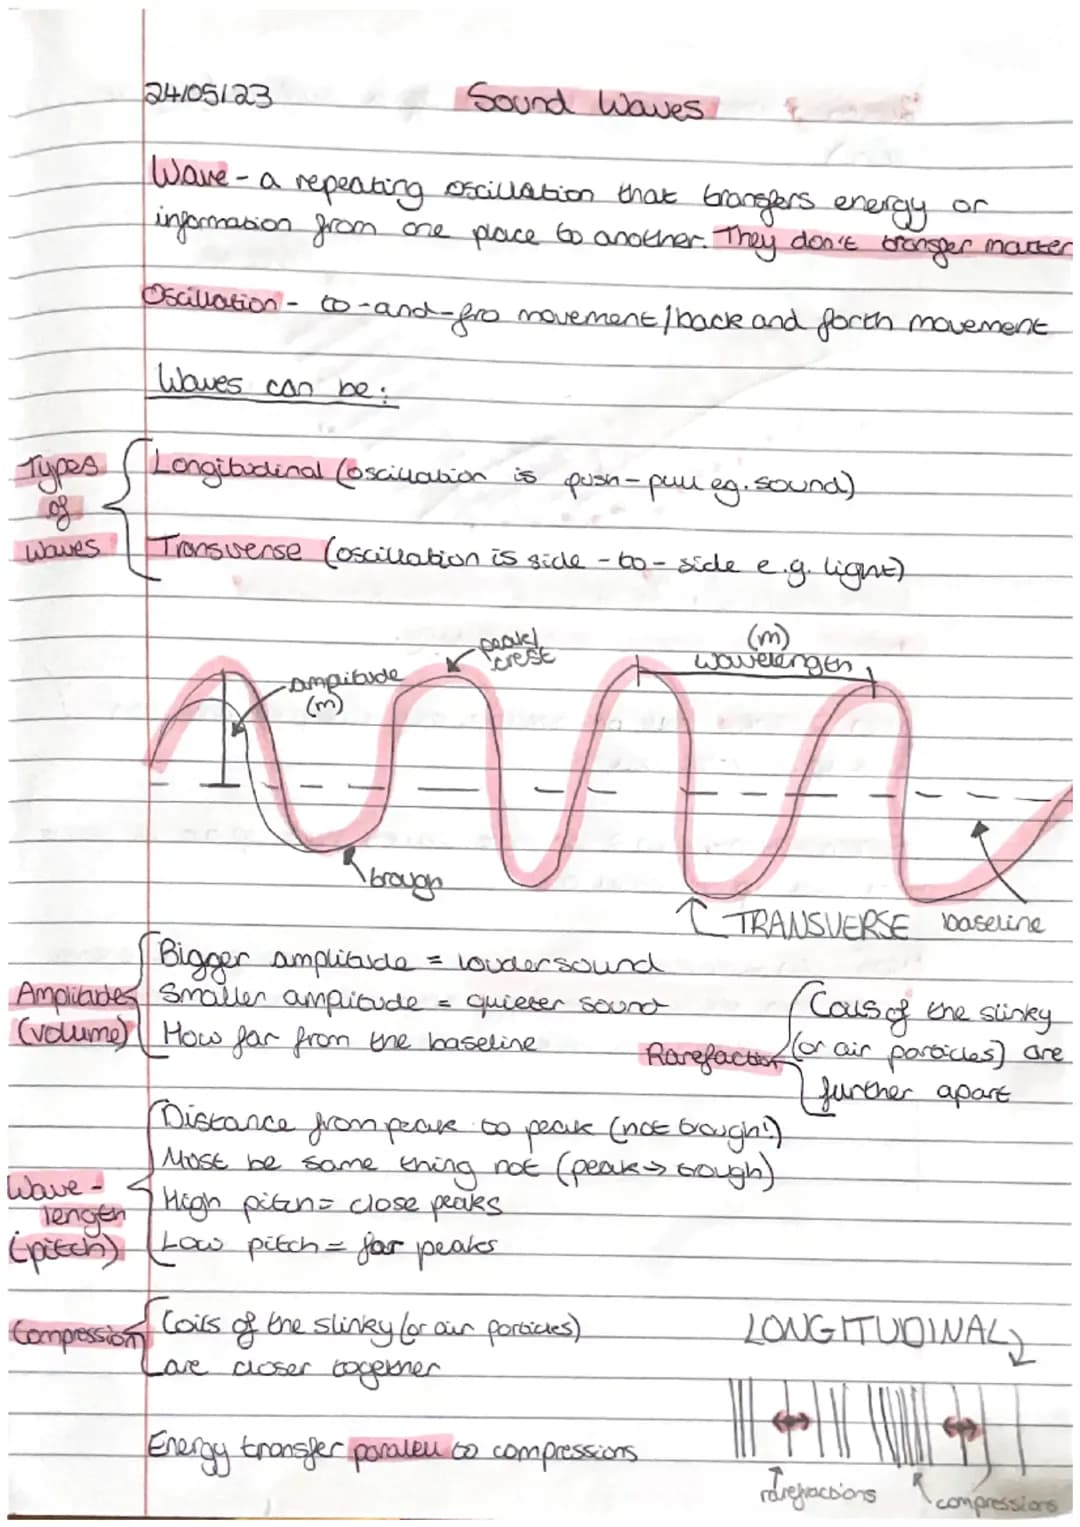 24/05/23
Sound Waves
Wave - a repeating oscillation that transfers energy or
information from one place to another. They don't transfer matter
Oscillation - to-and-fro movement/back and forth movement
Waves can be:
Types
of
waves
Longitudinal (oscillation is push-pull eg. sound)
Transverse (oscillation is side-to-side e.g. light)
peak/
crest
(m)
wavelength
ampitude
(m)
trough
TRANSVERSE
baseline
Amplitudes
(volume)
Bigger amplitude = louder sound
Smaller ampitude = quieter sound
How far from the baseline
Rarefaction
Coils of the slinky
(or air particles) are
further apart
Wave-
length
(pitch)
Distance from peak to peak (not trough!)
Must be same thing not (peak → trough)
High pitch = close peaks
Low pitch = far peaks
Compression
Coils of the slinky (or air particles)
are closer together
LONGITUDINAL
Energy transfer parallel to compressions
rarefractions
compressions